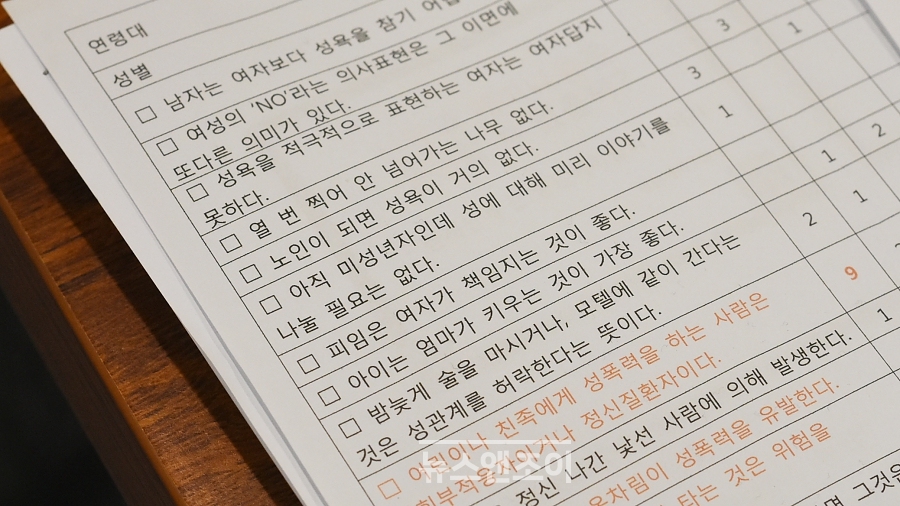 연령대
성별
□ 남자는 여자보다 성욕을 참기
3 1
□ 여성의 'NO'라는 의사표현은 그 이면에
또다른 의미가 있다.
3
□ 성욕을 적극적으로 표현하는 여자는 여자답지
못하다.
1
□ 열 번 찍어 안 넘어가는 나무 없다.
□ 노인이 되면 성욕이 거의 없다.
1 2
□ 아직 미성년자인데 성에 대해 미리 이야기를
나눌 필요는 없다.
□ 피임은 여자가 책임지는 것이 좋다.
2 1
□ 아이는 엄마가 키우는 것이 가장 좋다.
□ 밤늦게 술을 마시거나, 모텔에 같이 간다는
것은 성관계를 허락한다는 뜻이다.
9
□ 어린이나 친족에게 성폭력을 하는 사람은
정신질환자이다.
1
정신 나간 낯선 사람에 의해 발생한다.
옷차림이 성폭력을 유발한다.
타는 것은 위험을
그것은
뉴스앤조이